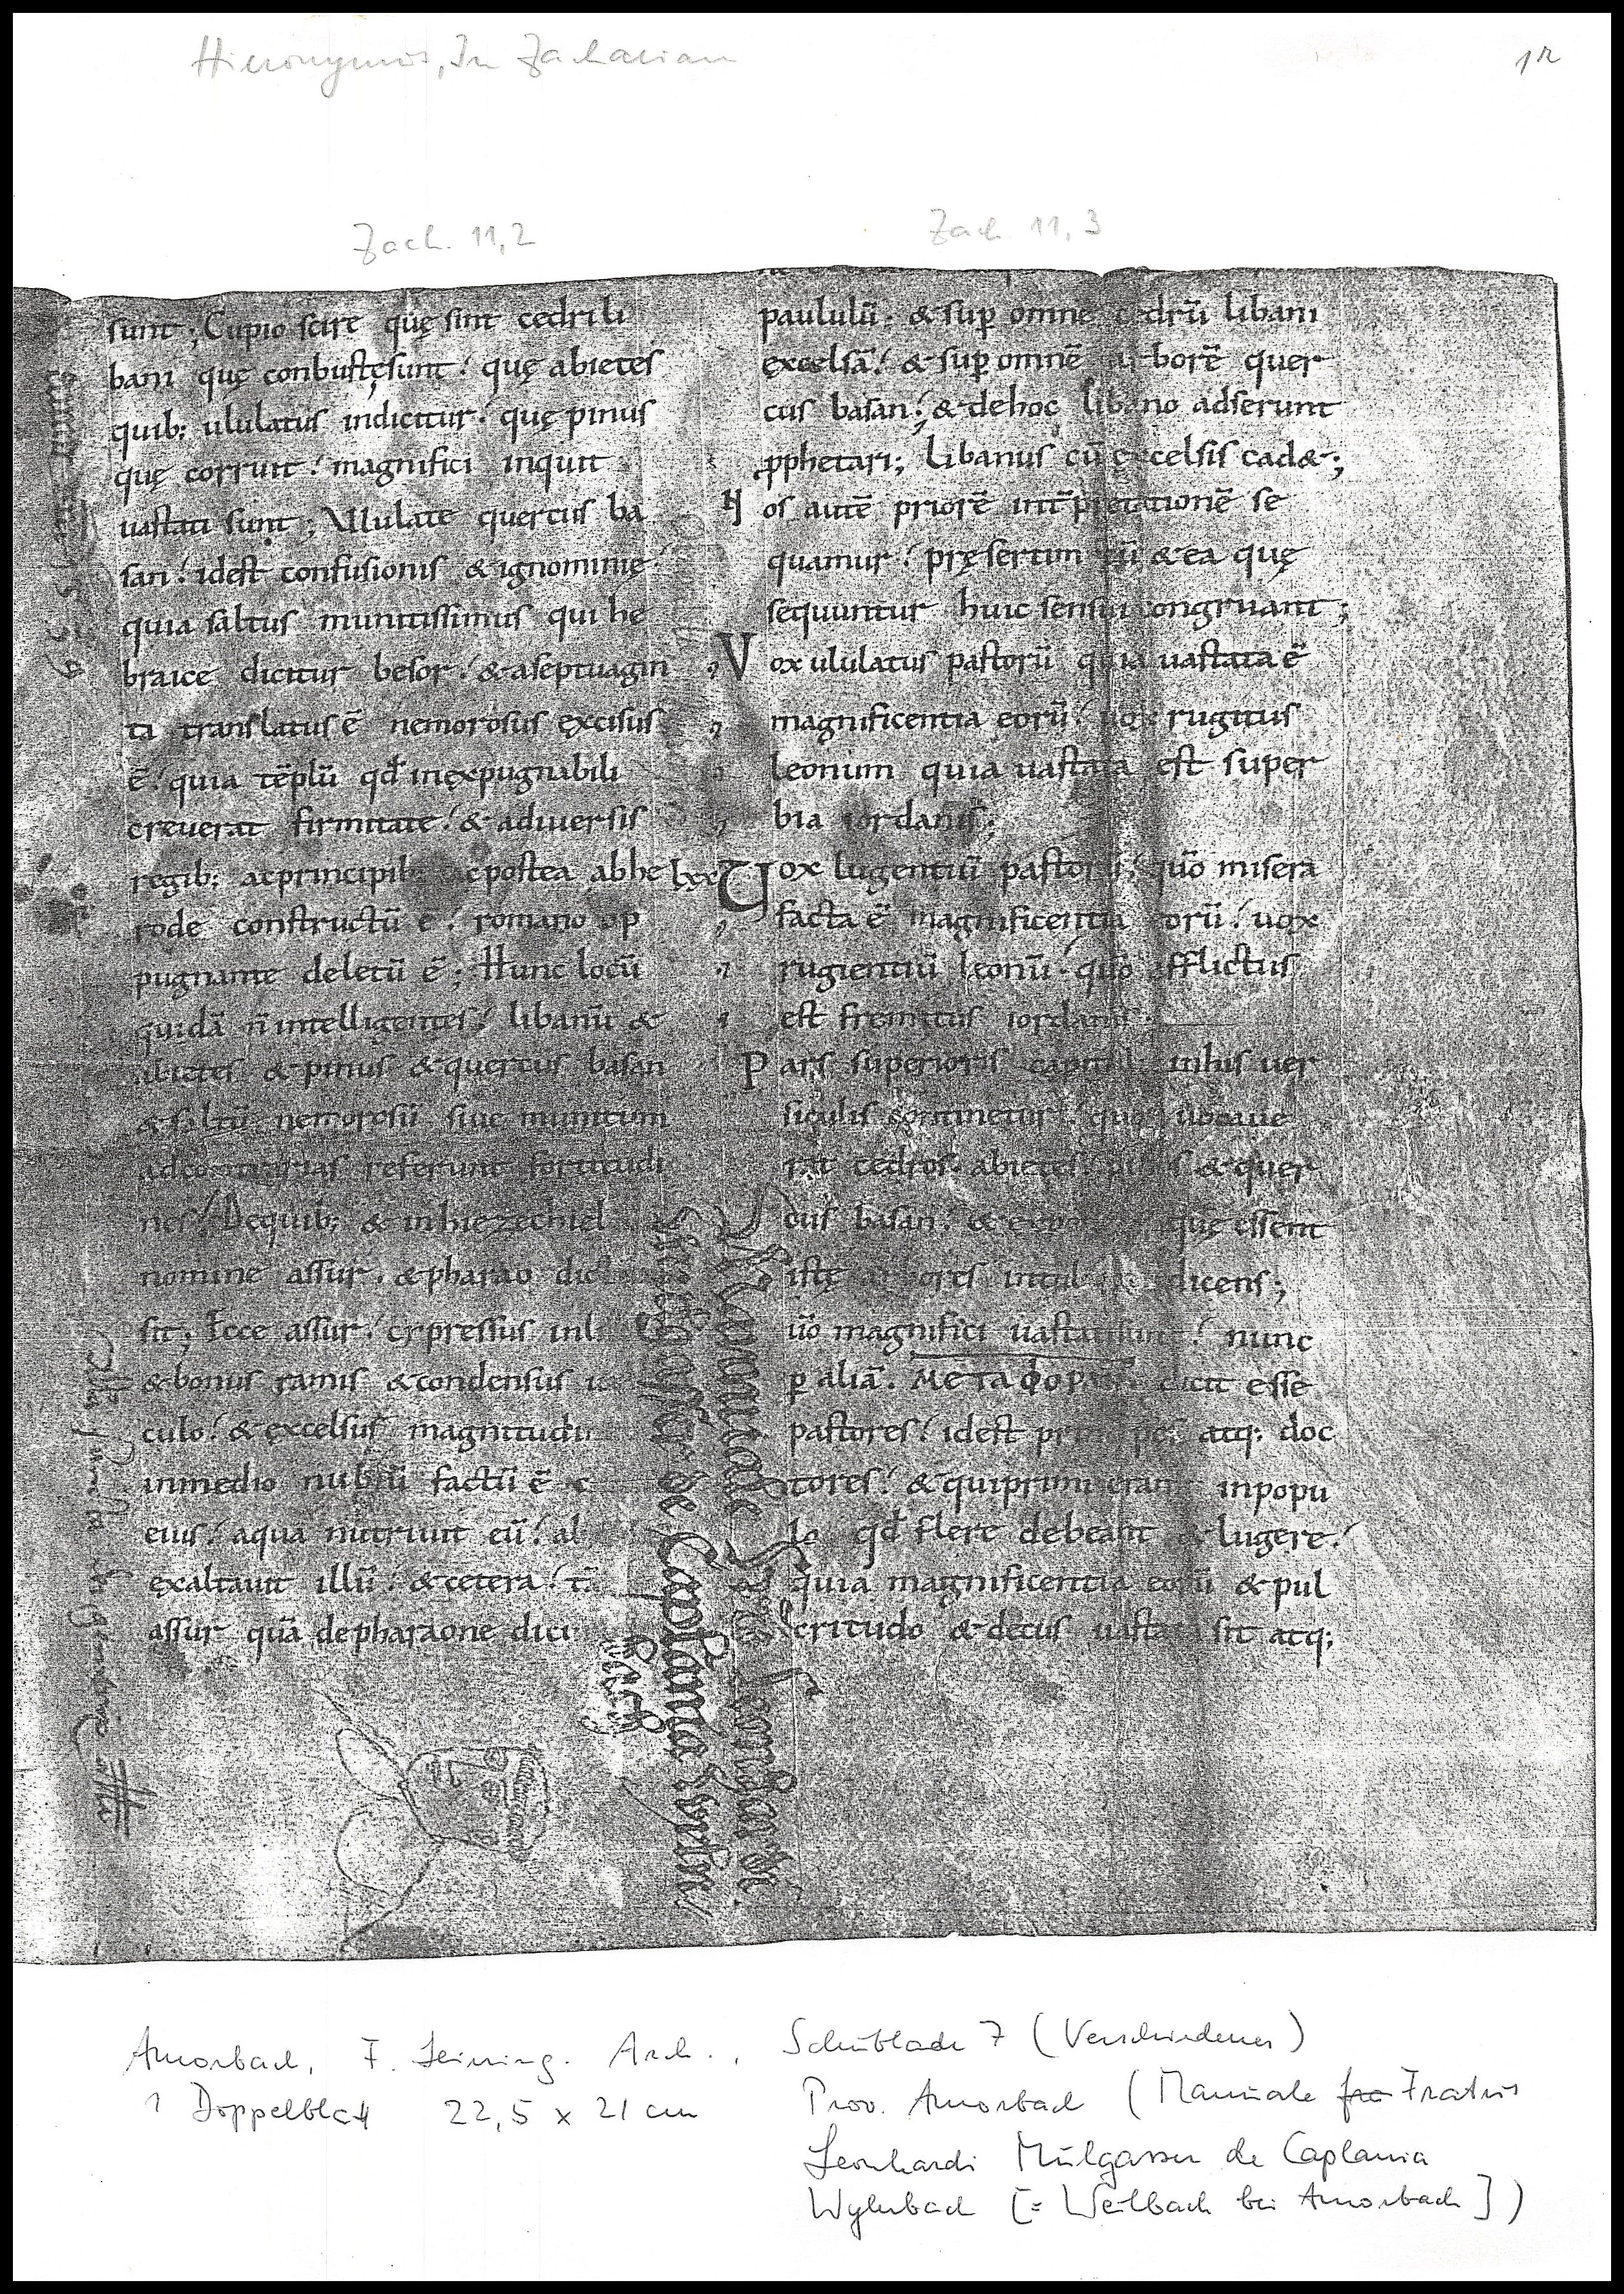 Hieronymus, In Zachariam
1r
Zach. 11,2
sunt; Cupio scire quę sint cedri li
bani quę conbustęsunt! quę abietes
quib; ululatus indicitur. quę pinus
quę corruit! magnifici inquit
uastati sunt; Ululate quercus ba
san! idest confusionis & ignominię!
quia saltus munitissimus qui he
braice dicitur besor! & aseptuagin
ta translatus ē nemorosus ęxcisus
ē! quia tēplū qđ inęxpugnabili
creuerat firmitate! & adiuersis
regib; acprincipib; acpostea abhe
rode constructū ē! romano op
pugnante deletū ē; Hunc locū
quidā n̄ intelligentes! libanū &
abietes & pinus & quercus basan
& saltū nemorosū siue munitum
adcontrarias referunt fortitudi
nes! Dequib; & inhiezechiel
nomine assur. & pharao dict
sit; Ecce assur! cypressus inl
& bonus ramis & condensus
culo! & ęxcelsus magnitudi
inmedio nubiū factū ē
eius! aqua nutriuit eū! al
ęxaltauit illū! & cetera! t
assur quā depharaone dici
Zach. 11,3
paululū. & sup omne cedrū libani
ęxcelsā! & sup omnē arborē quer
cus basan! & dehoc libano adserunt
pphetari; Libanus cū excelsis cad&;
N os autē priorē intpretationē se
quamur! pręsertim cū & ea quę
sequuntur huic sensui congruant;
V ox ululatus pastorū quia uastata ē
magnificentia eorū! uox rugitus
leonum quia uastata est super
bia iordanis;
lxx U ox lugentiū pastorū! quō misera
facta ē magnificentia eorū! uox
rugientiū leonū! quō afflictus
est fremitus iordanis
P ars superioris capituli inhis uer
siculis continetur! quos uocaue
rat cedros. abietes. pinus & quer
cus basan! & quę essent
istę arbores dicens;
uō magnifici uastatisunt! nunc
p aliā. ΜΕΤΑΦΟΡΑΝ dicit esse
pastores! idest principes atq; doc
tores! & quiprimi erant inpopu
lo qđ flere debeant & lugere!
quia magnificentia eorū & pul
critudo & decus uastata sit atq;
Manuale Fratris Leonhardi
de Caplania
Amorbach, F. Leining. Arch., Schublade 7 (Verschiedenes)
1 Doppelblatt 22,5 x 21 cm
Prov. Amorbach (Manuale fra Fratris
Leonhardi Mülgasser de Caplania
Wylnbach [= Weilbach bei Amorbach])